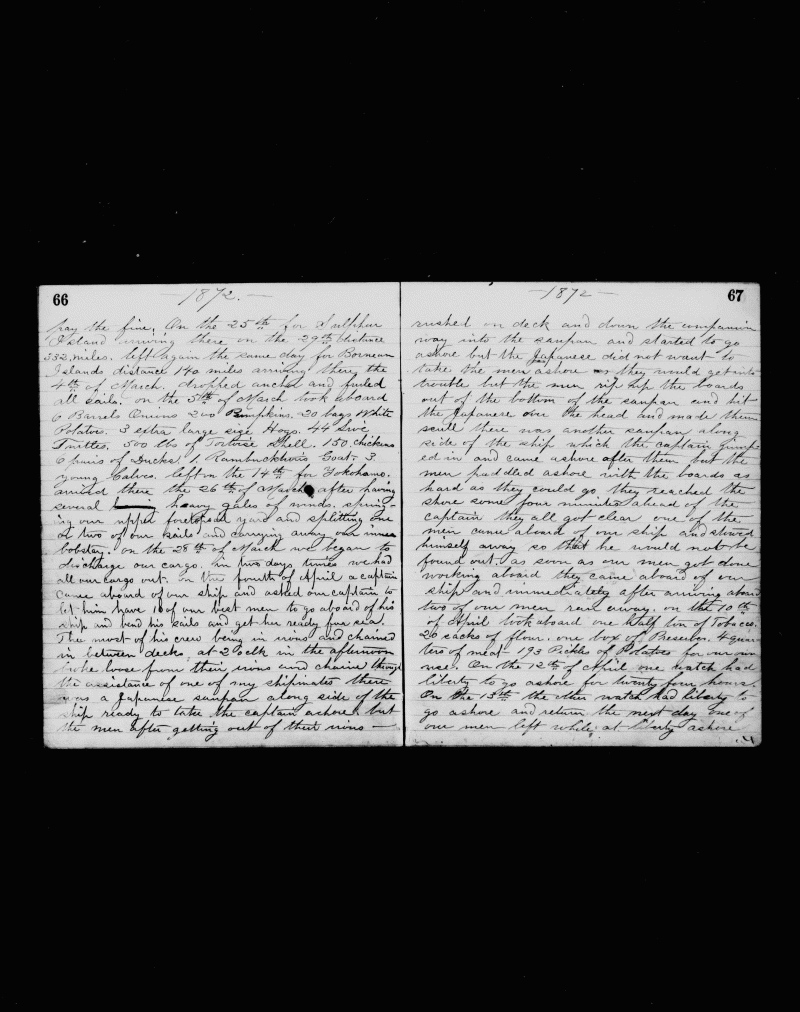 66
—1872.—
pay the fine. On the 25th for Sulphur
Island arriving there on the 29th distance
332 miles. left again the same day for Bornean
Islands distance 140 miles arriving there the
4th of March. dropped anchor and furled
all sails. on the 5th of March took aboard
6 Barrels Onions 200 Pumpkins. 20 bags White
Potatoes. 3 extra large size Hogs. 44 live
Turtles. 500 lbs of Tortoise Shell. 150 chickens
6 pairs of Ducks 1. Goat. 3
young Calves. left on the 14th for Yokohama.
arrived there the 26th of March after having
several heavy gales of winds. spring-
ing our upper foretopsail yard and splitting one
or two of our sails and carrying away our inner
bobstay. on the 28th of March we began to
discharge our cargo. in two days times we had
all our cargo out. on the fourth of April a captain
came aboard of our ship and asked our captain to
let him have 10 of our best men to go aboard of his
ship and bend his sails and get her ready for sea.
The most of his crew being in irons and chained
in between decks. at 2 oclk in the afternoon
broke loose from their irons and chains through
the assistance of one of my shipmates there
was a Japanese sanpan along side of the
ship ready to take the captain ashore. but
the men after getting out of their irons —
67
—1872—
rushed on deck and down the companion
way into the sanpan and started to go
ashore but the Japanese did not want to
take the men ashore as they would get into
trouble but the men rip up the boards
out of the bottom of the sanpan and hit
the Japanese over the head and made them
scull there was another sanpan along
side of the ship which the captain jump-
ed in and came ashore after them but the
men paddled ashore with the boards as
hard as they could go they reached the
shore some four minutes ahead of the
captain they all got clear one of the
men came aboard of our ship and stowed
himself away so that he would not be
found out. as soon as our men got done
working aboard they came aboard of our
ship and immediately after arriving aboard
two of our men run away. on the 10th
of April took aboard one half ton of Tobacco.
26 sacks of flour. one box of 4 quar-
ters of meat 193 Pickls of Potatoes for our own
use. On the 12th of April one watch had
liberty to go ashore for twenty four hours.
On the 13th the other watch had liberty to
go ashore and return the next day one of
our men left while at liberty ashore